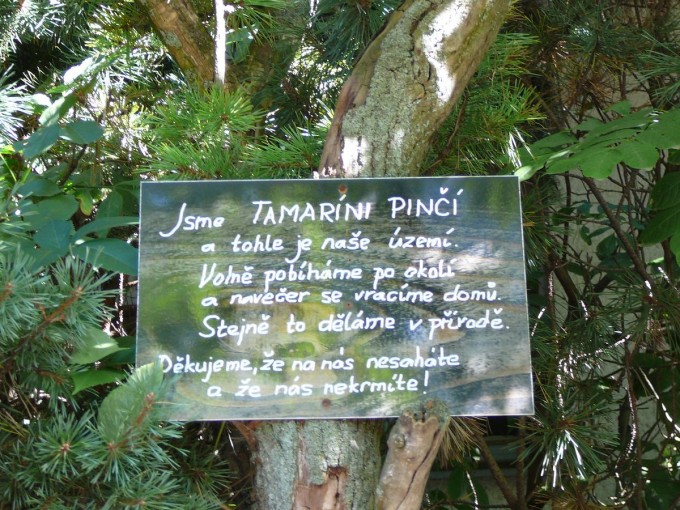 Jsme TAMARÍNI PINČÍ
a tohle je naše území.
Volně pobíháme po okolí
a navečer se vracíme domů.
Stejně to děláme v přírodě.
Děkujeme, že na nás nesaháte
a že nás nekrmíte!